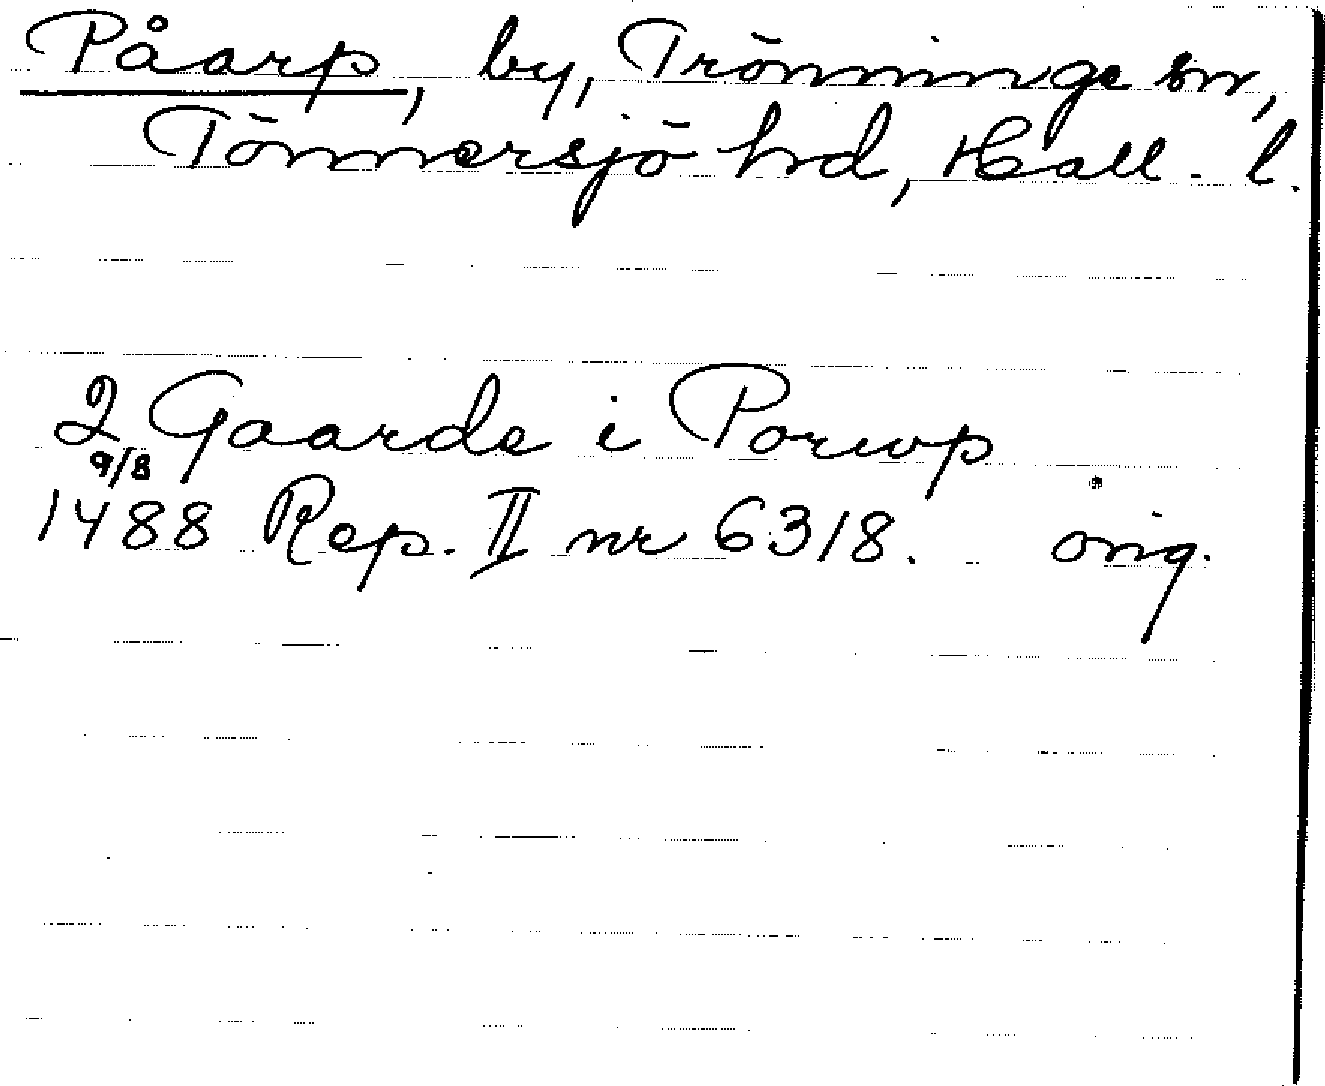 Påarp, by, Trönninge sn,
Tönnersjö hd, Hall. l.
2 Gaarde i Porwp
9/8
1488 Rep. II nr 6318. orig.